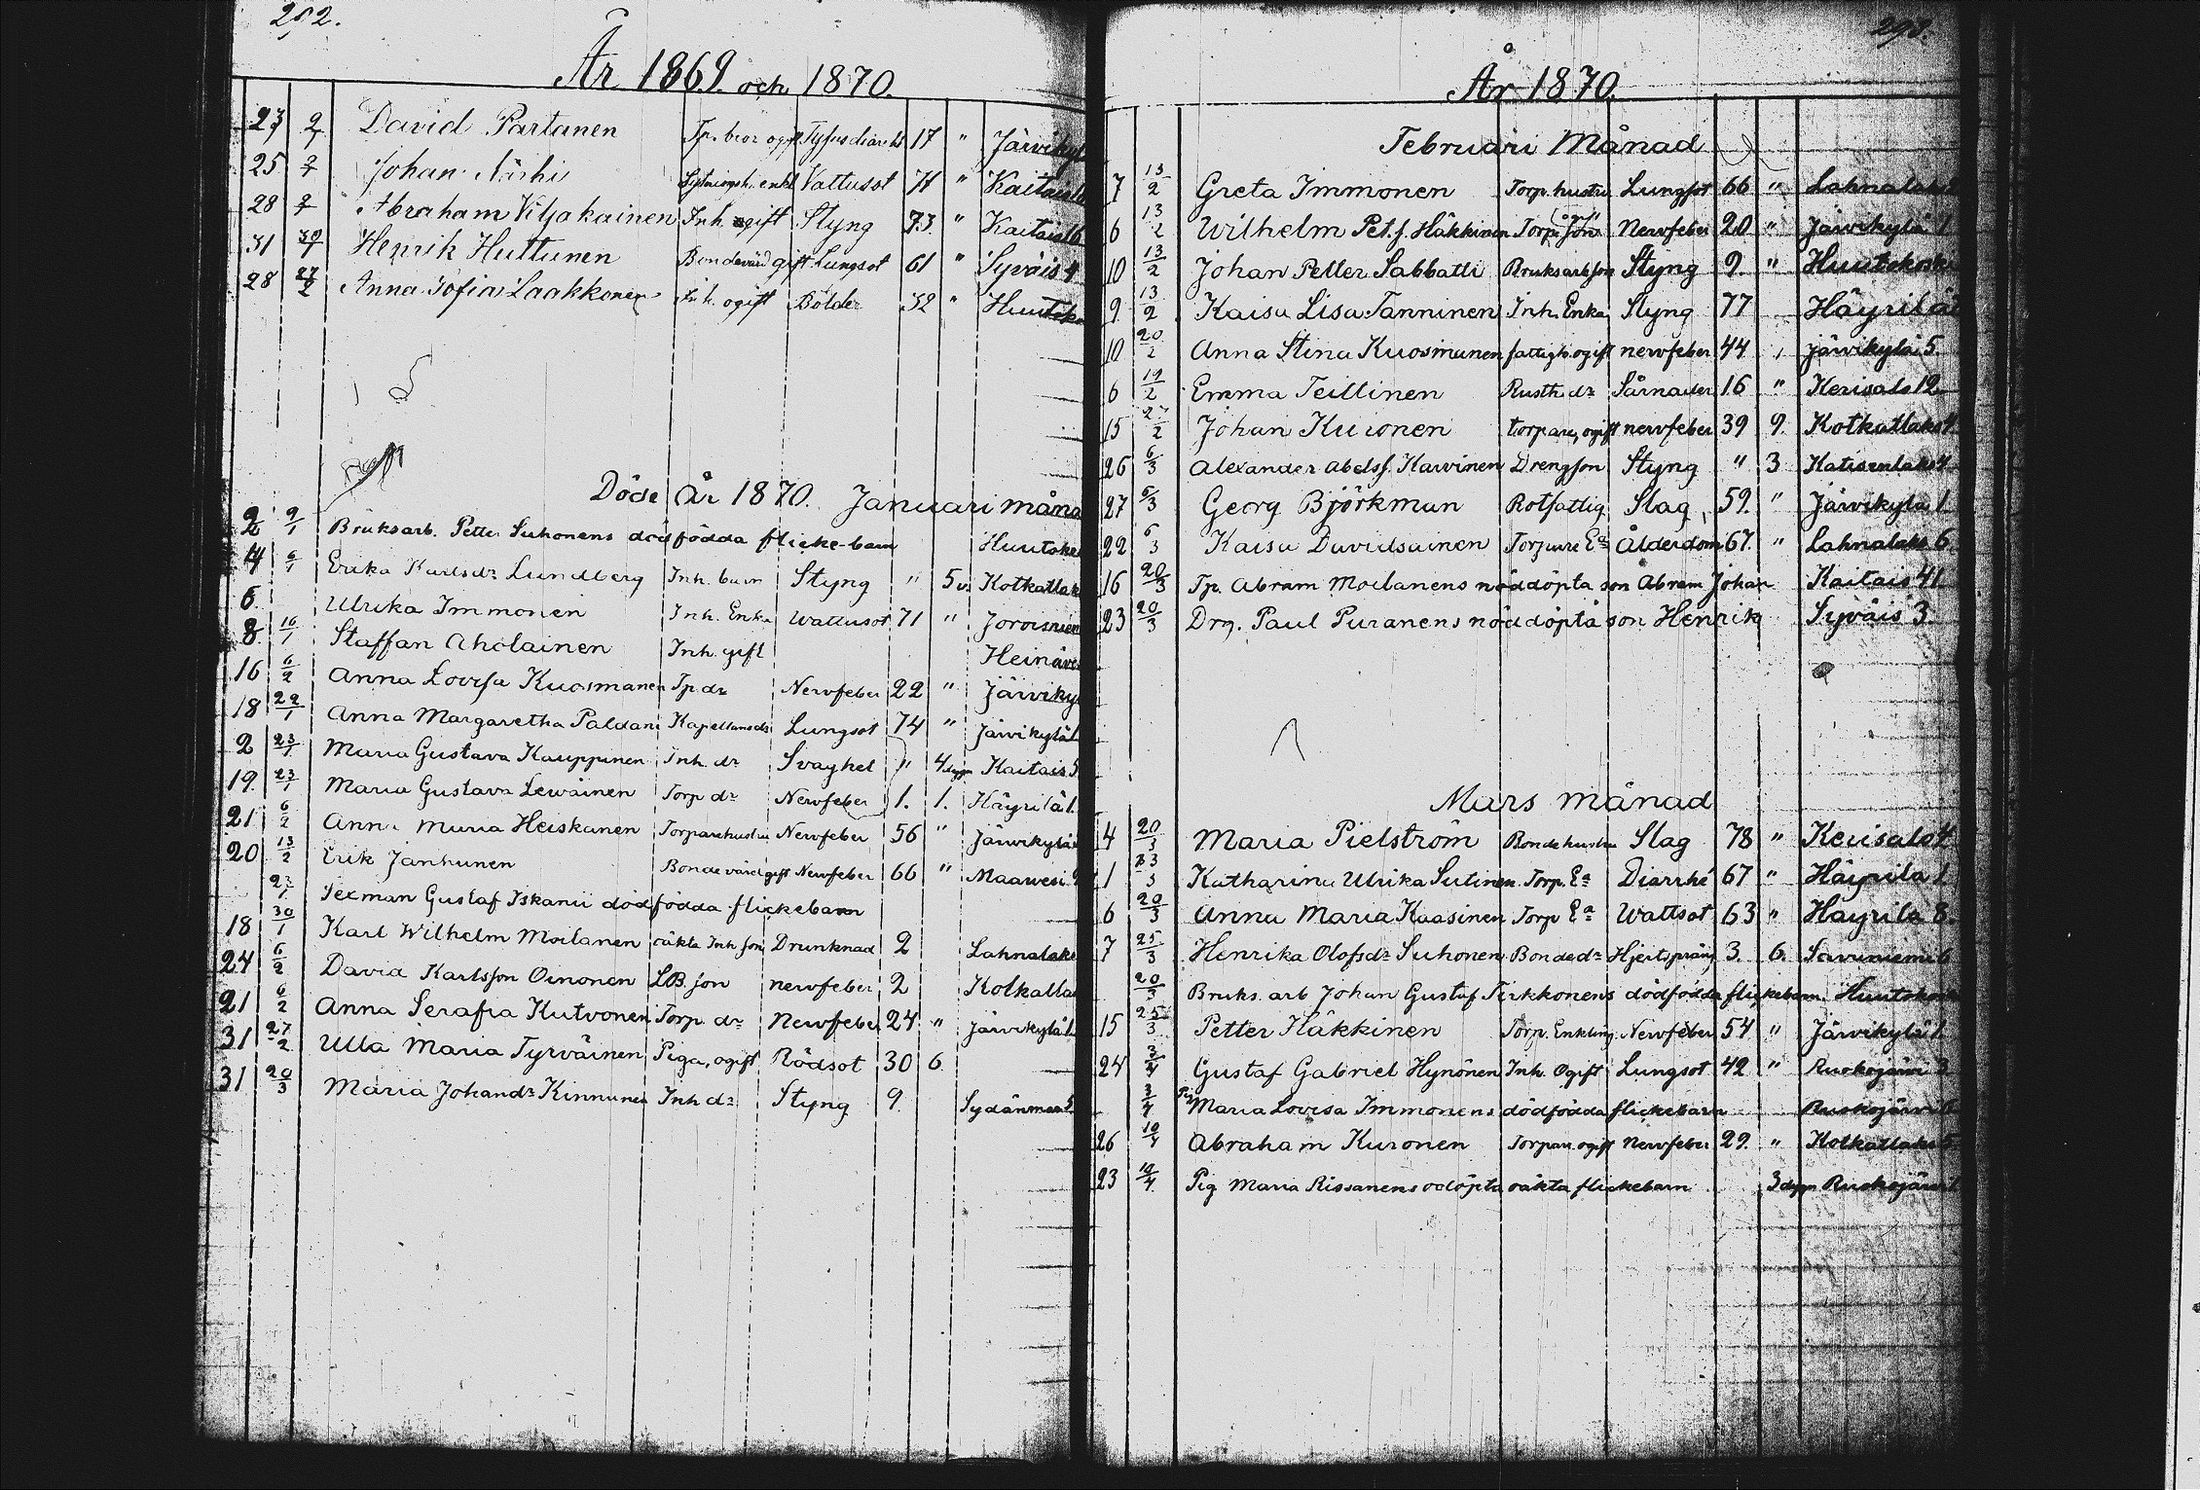 292.
År 1869 och 1870.
27 2/1 David Partanen Tp. bror ogift Tyfus diarré 17 " Järvikyl
25 Johan Vattusot " Kaitais 16
28 Abraham Viljakainen Inh. ogift Styng 73 " Kaitais 16
31 Henrik Huttunen Bondevärd gift Lungsot 61 " Syväis 4
28 27/2 Anna Sofia Laakkonen Inh. ogift Bölder 32 " Huutoko
Döde År 1870. Januari måna
2 9/1 Bruksarb. Petter Suhonens dödfödda flicke-barn Huutoko
4 6/1 Erika Karlsdr Lundberg Inh. barn Styng " 5 v. Kotkatlak
6. Ulrika Immonen Inh. Enka Wattusot 71 " Joroisniem
8 16/1 Staffan Aholainen Inh. gift Heinäves
16 6/2 Anna Lovisa Kuosmanen Tp. dr Nervfeber 22 " Järviky
18 22/1 Anna Margaretha Paldani Kapellansdr Lungsot 74 " Järvikylä 1
2 23/1 Maria Gustava Kauppinen Inh. dr Svaghet " 4 dygn Kaitais 5
19. 23/1 Maria Gustava Lewäinen Torp dr Nervfeber 1. 1. Häyrilä 1.
21 6/2 Anna Maria Heiskanen Torparehustru Nervfeber 56 " Järvikylä
20 13/2 Erik Janhunen Bondevärd gift Nervfeber 66 " Maawesi
23/1 Sexman Gustaf Iskanii dödfödda flickebarn
18 30/1 Karl Wilhelm Moilanen oäkta Inh. son Drunknad 2 Lahnalaks
24 6/2 David Karlsson Oinonen LB. son nervfeber 2 Kotkatla
21 6/2 Anna Serafia Kutvonen Torp. dr Nervfeber 24 " Järvikylä 1.
31 27/2 Ulla Maria Tyrväinen Piga, ogift Rödsot 30 6
31 20/3 Maria Johandr Kinnunen Inh dr Styng 9. Sydänmaa 5.
293.
År 1870.
Februari Månad
7 13/2 Greta Immonen Torp. hustru Lungsot 66 " Lahnalaks
6 13/2 Wilhelm Pet. s. Häkkinen Torp. son ogift Nervfeber 20 " Järvikylä 1
10 13/2 Johan Petter Sabbatli Bruksarb. son Styng 9. " Huutokosk
9 13/2 Kaisa Lisa Tanninen Inh. Enka Styng 77 Häyrilä
10 20/2 Anna Stina Kuosmanen fattigh. ogift nervfeber 44 " Järvikylä 5.
6 19/2 Emma Teittinen Rusth. dr Sårnader 16 " Kerisalo 12
15 27/2 Johan Kuronen torpare, ogift nervfeber 39 9. Kotkatlaks 4.
26 6/3 Alexander Abelss. Karvinen Drengson Styng " 3 Katisenlaks 4
27 6/3 Georg Björkman Rotfattig Slag 59. " Järvikylä 1
22 6/3 Kaisa Davidsainen Torpare Ea Ålderdom 67. " Lahnalaks 6.
16 20/3 Tp. Abram Moilanens nöddöpta son Abram Johan Kaitais 41
23 20/3 Drg. Paul Puranens nöddöpta son Henrik Syväis 3.
Mars månad
4 20/3 Maria Pielström Bondehustru Slag 78 " Kerisalo 4
1 23/3 Katharina Ulrika Sutinen Torp. Ea Diarrhé 67 " Häyrilä 1.
6 20/3 Anna Maria Kaasinen Torp Ea Wattsot 63 " Häyrilä 8.
7 25/3 Henrika Olofsdr Suhonen Bondedr Hjertspräng 3. 6. Savuniemi 6
20/3 Bruks. arb Johan Gustaf Tirkkonens dödfödda flickebarn Huutokosk
15 25/3 Petter Häkkinen Torp. Enkling Nervfeber 54 " Järvikylä 1
24 3/4 Gustaf Gabriel Hynönen Inh. ogift Lungsot 42 " Ruokojärvi 3
3/4 Pig Maria Lovisa Immonens dödfödda flickebarn Ruokojärvi 6
26 10/4 Abraham Kuronen Torpare ogift Nervfeber 29. " Kotkatlaks 5
23 10/4 Pig Maria Rissanens odöpta oäkta flickebarn 3 dygn Ruokojärvi